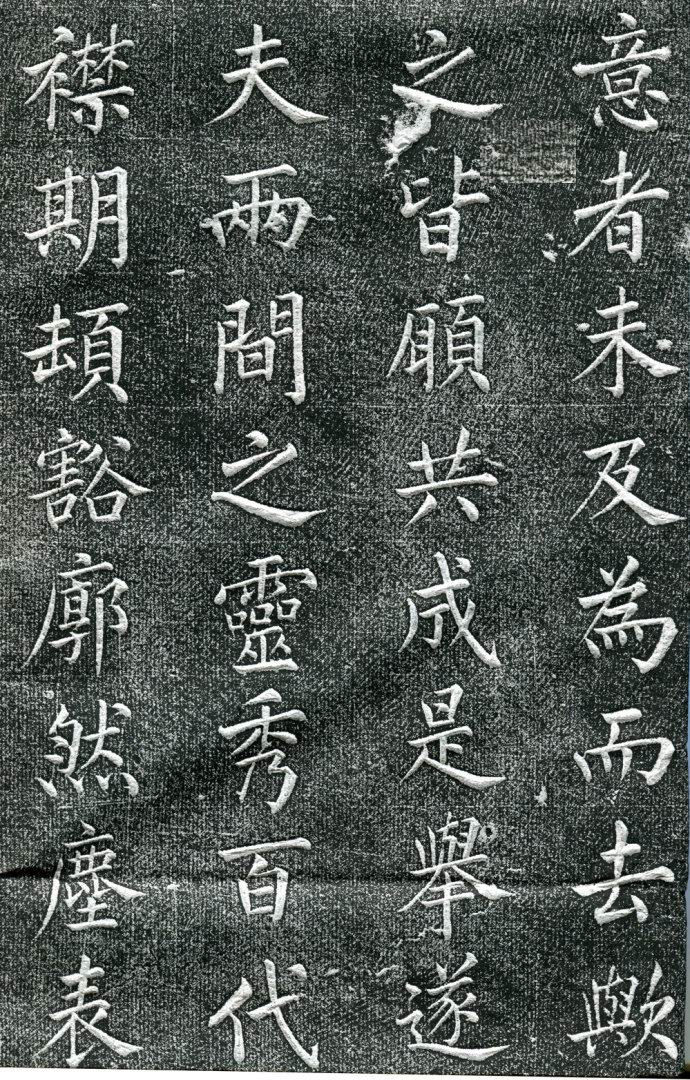 意者未及為而去歟
之皆願共成是舉遂
夫兩間之靈秀百代
襟期頡豁廓然塵表